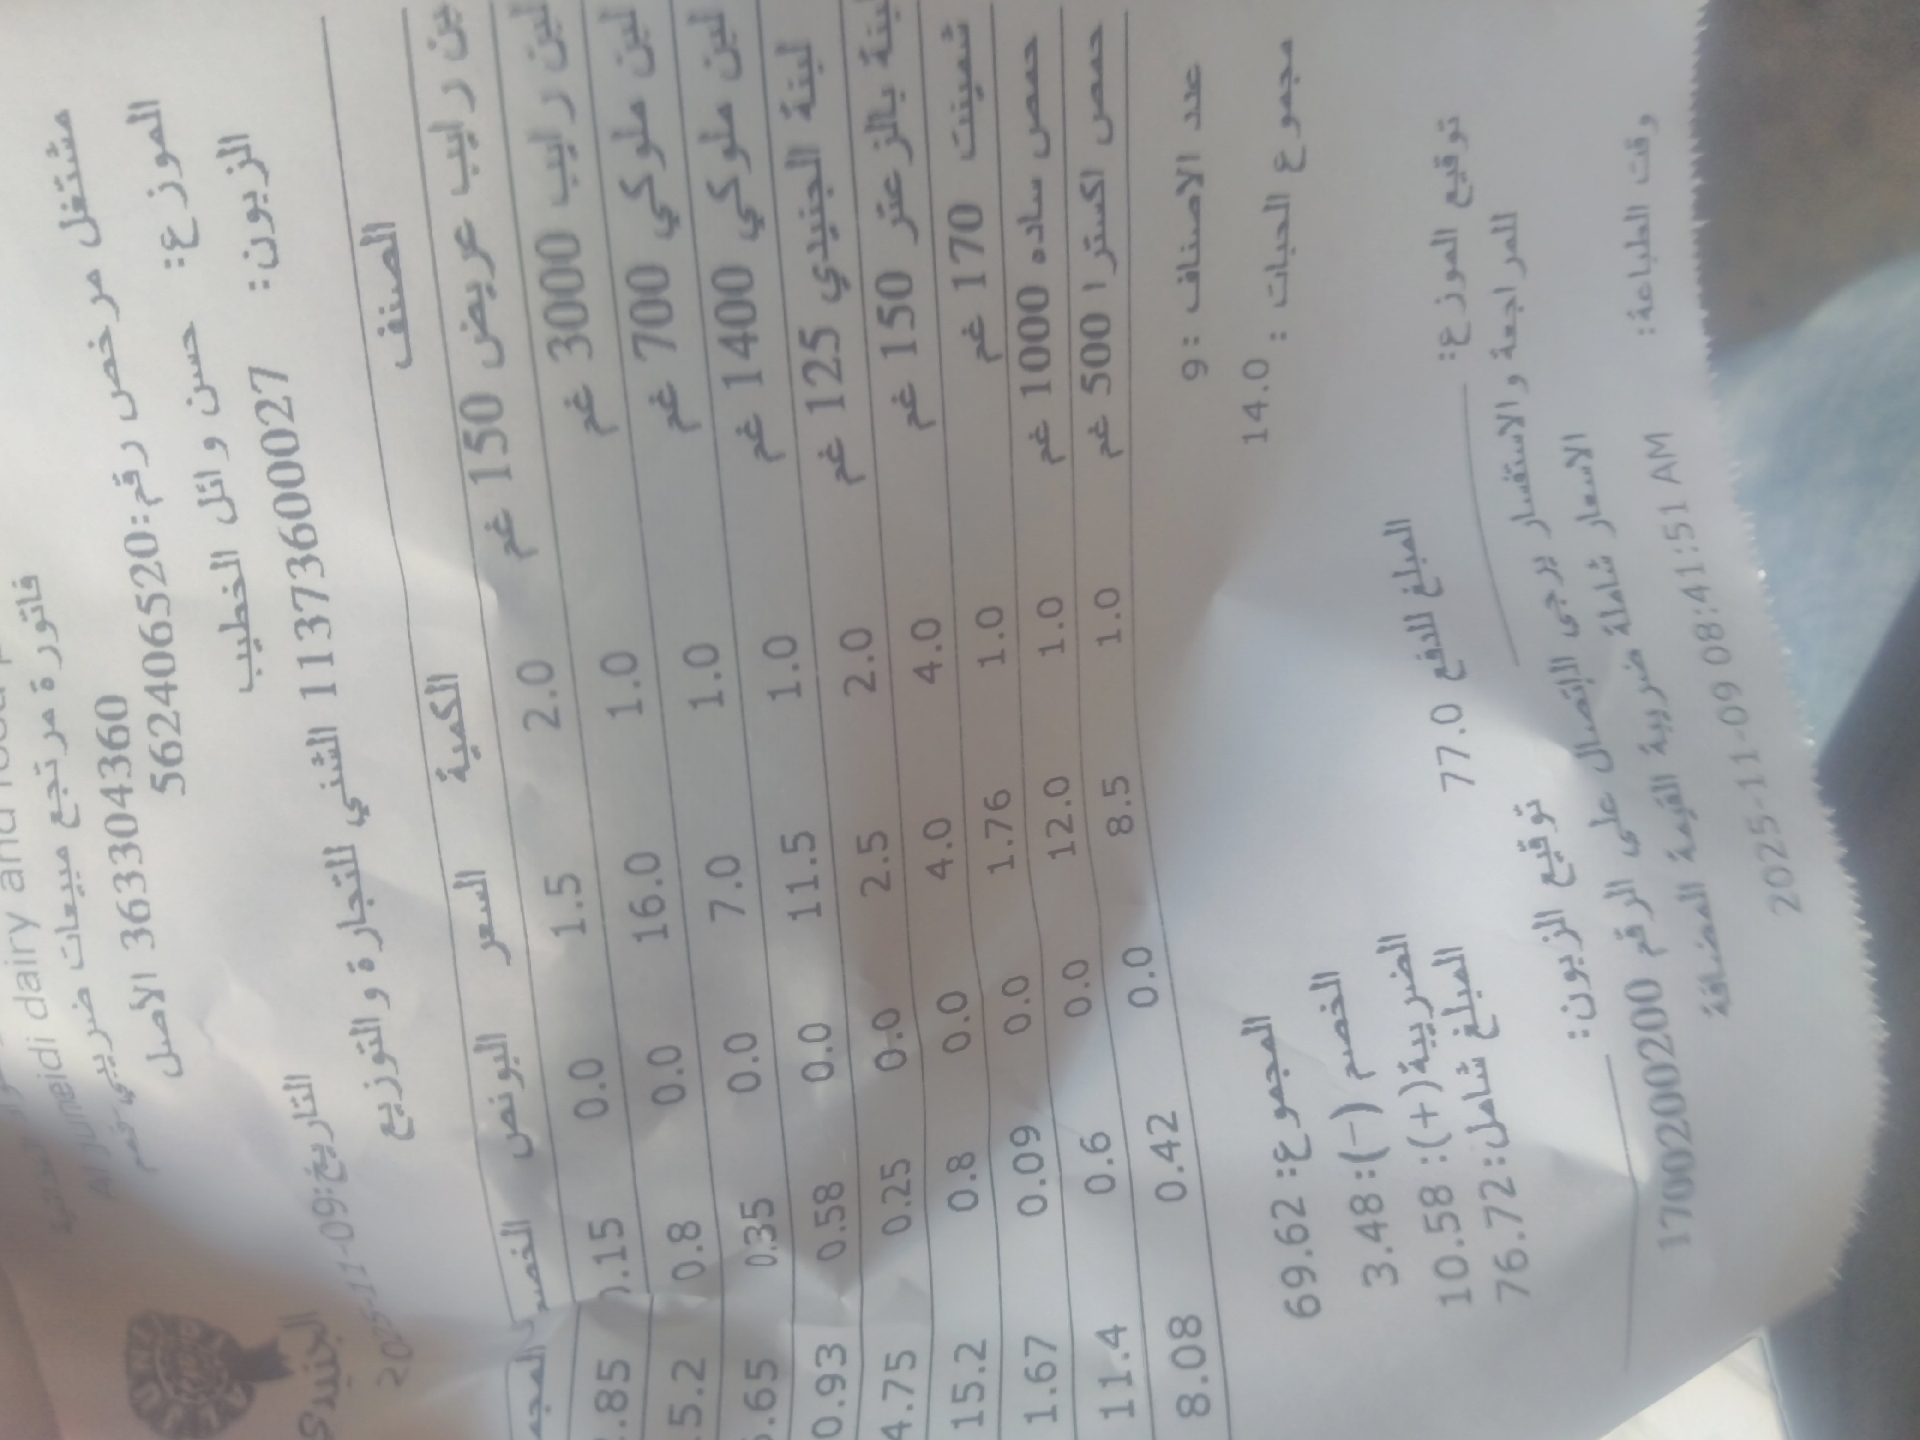 Al Juneidi dairy and food
فاتورة مرتجع مبيعات ضريبي
مشتغل مرخص رقم:562406520 3633304360 الأصل
الموزع: حسن وائل الخطيب
الزبون: 1137360027 الشني للتجارة والتوزيع
التاريخ:2025-11-09
الجنيدي
الصنف الكمية السعر البونص الخصم المجموع
لبن رايب عريض 150 غم 2.0 1.5 0.0 0.15 .85
لبن رايب 3000 غم 1.0 16.0 0.0 0.8 5.2
لبن ملوكي 700 غم 1.0 7.0 0.0 0.35 .65
لبن ملوكي 1400 غم 1.0 11.5 0.0 0.58 0.93
لبنة الجنيدي 125 غم 2.0 2.5 0.0 0.25 4.75
لبنة بالزعتر 150 غم 4.0 4.0 0.0 0.8 15.2
شمينت 170 غم 1.0 1.76 0.0 0.09 1.67
حمص ساده 1000 غم 1.0 12.0 0.0 0.6 11.4
حمص اكسترا 500 غم 1.0 8.5 0.0 0.42 8.08
عدد الاصناف : 9
مجموع الحبات : 14.0
المجموع: 69.62
الخصم (-): 3.48
الضريبة(+): 10.58
المبلغ شامل: 76.72
المبلغ للدفع 77.0
توقيع الموزع: توقيع الزبون:
للمراجعة والاستفسار يرجى الإتصال على الرقم 1700200200
الاسعار شاملة ضريبة القيمة المضافة
وقت الطباعة: 2025-11-09 08:41:51 AM